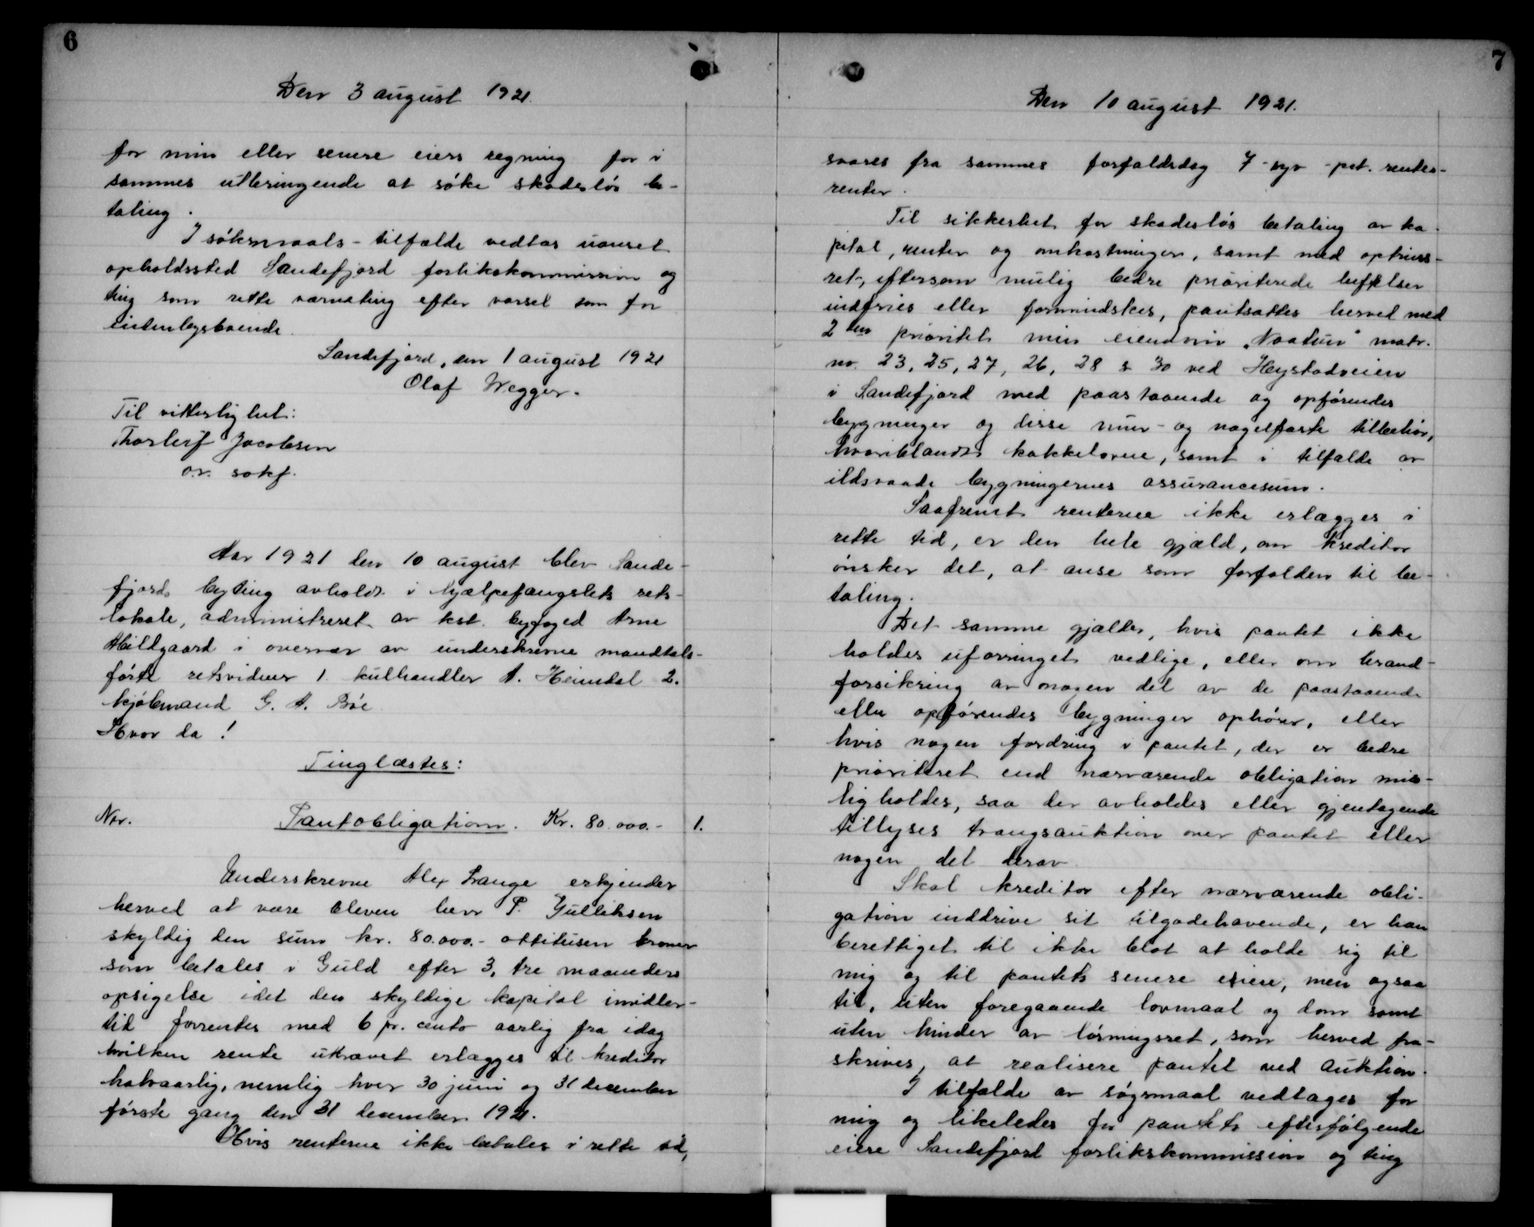 6
Den 3 august 1921.
for min eller senere eiers regning for i
sammes utbringende at søke skadesløs be-
taling.
I søksmaals-tilfælde vedtas uanset
opholdssted Sandefjord forlikskommission og
ting som rette værneting efter varsel som for
indenbysboende.
Sandefjord, den 1 august 1921
Olaf Wegger.
Til vitterlighet:
Thorleif Jacobsen
o.r. sakf.
Aar 1921 den 10 august blev Sande-
fjords byting avholdt i hjælpefængslets rets-
lokale, administreret av kst. byfoged Arne
Mildgaard i overvær av underskrevne mandtals-
førte retsvidner 1. kulhandler A. Heimdal 2.
kjøbmand G. A. Bøe
Hvor da!
Tinglæstes:
Nr. Pantobligation. Kr. 80.000.- 1.
Underskrevne Alex Lange erkjender
herved at være bleven herr P. Gulliksen
skyldig den sum kr. 80.000.- ottitusen kroner
som betales i Guld efter 3, tre maaneders
opsigelse idet den skyldige kapital imidler-
tid forrentes med 6 pr. cento aarlig fra idag
hvilken rente ukrævet erlægges til kreditor
halvaarlig, nemlig hver 30 juni og 31 december
første gang den 31 december 1921.
Hvis renterne ikke betales i rette tid,
7
Den 10 august 1921.
svares fra sammes forfaldsdag 7 - syv - pct. rentes-
renter.
Til sikkerhet for skadesløs betaling av ka-
pital, renter og omkostninger, samt med optrins-
ret, eftersom mulig bedre prioriterede heftelser
indfries eller formindskes, pantsættes herved med
2den prioritet min eiendom matr.
nr. 23, 25, 27, 26, 28 & 30 ved Hystadveien
i Sandefjord med paastaaende og opførendes
bygninger og disse mur- og nagelfaste tilbehør,
hvoriblandt kakkelovne, samt i tilfælde av
ildsvaade bygningernes assurancesum.
Saafremt renterne ikke erlægges i
rette tid, er den hele gjæld, om kreditor
ønsker det, at anse som forfalden til be-
taling.
Det samme gjælder, hvis pantet ikke
holdes uforringet vedlige, eller om brand-
forsikring av nogen del av de paastaaende
eller opførendes bygninger ophører, eller
hvis nogen fordring i pantet, der er bedre
prioriteret end nærværende obligation mis-
ligholdes, saa der avholdes eller gjentagende
tillyses tvangsauktion over pantet eller
nogen del derav
Skal kreditor efter nærværende obli-
gation inddrive sit tilgodehavende, er han
berettiget til ikke blot at holde sig til
mig og til pantets senere eiere, men ogsaa
til, uten foregaaende lovmaal og dom samt
uten hinder av løsningsret, som herved fra-
skrives, at realisere pantet ved auktion.
I tilfælde av søgsmaal vedtages for
mig og likeledes for pantets efterfølgende
eiere Sandefjord forlikskommission og ting